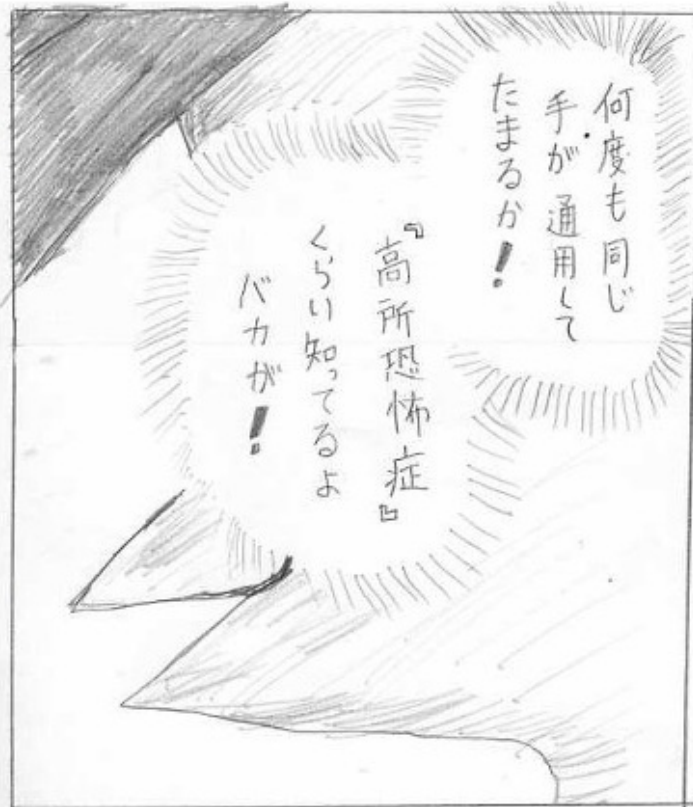 何度も同じ
手が通用して
たまるか!
『高所恐怖症』
くらい知ってるよ
バカが!